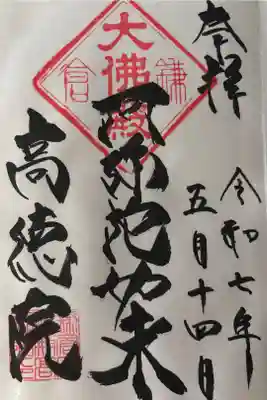 奉拝
令和七年
五月十四日
阿弥陀如来
大佛殿
鎌倉
高徳院